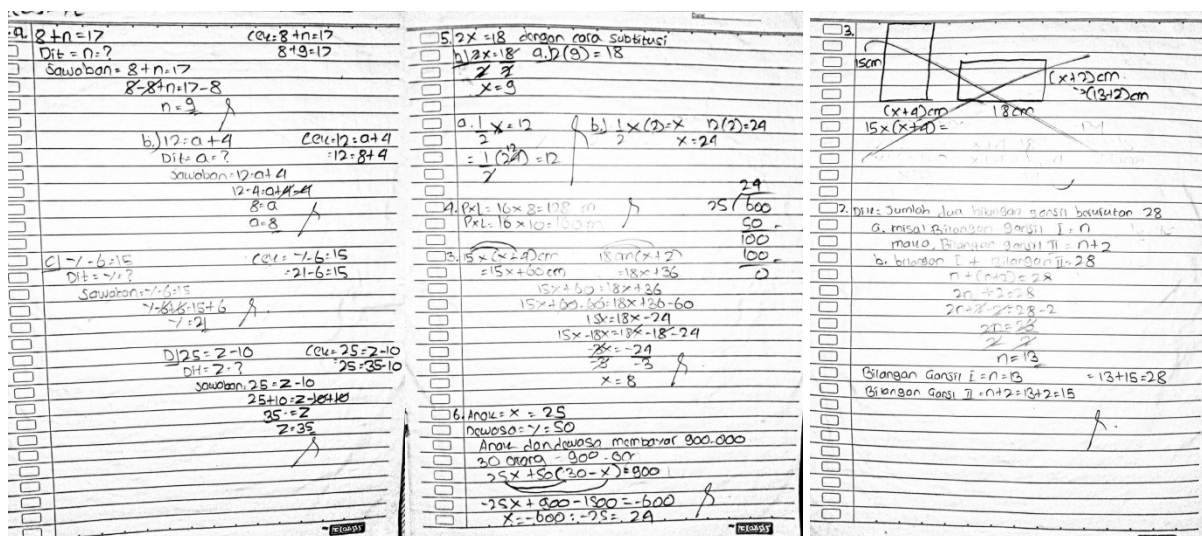 a. 8+n=17
Cek: 8+n=17
Dit = n=?
8+9=17
Jawaban= 8+n=17
8-8+n=17-8
n=9
b.) 12=a+4
Cek=12=a+4
Dit= a=?
=12=8+4
Jawaban=12=a+4
12-4=a+4-4
8=a
a=8
C) y-6=15
Cek = y-6=15
Dit = y=?
=21-6=15
Jawaban=y-6=15
y-6+6=15+6
y=21
D) 25=z-10
Cek=25=z-10
Dit=z=?
25=35-10
Jawaban, 25=z-10
25+10=z-10+10
35=z
z=35
5. 2x=18 dengan cara subtitusi
b) 2x=18 a. 2(9)=18
2 2
x=9
a. 1/2 x=12
b.) 1/2 x(2)=x 12(2)=24
x=24
= 1/2 (24) =12
4. PxL = 16x8=128 m
PxL=16x10=160 m
24
25/600
50 -
100
100 -
0
3. 15x(x+4)cm 18cm(x+2)
=15x+60cm =18x+36
15x+60=18x+36
15x+60-60=18x+36-60
15x=18x-24
15x-18x=18x-18x-24
-3x=-24
-3 -3
x=8
6. Anak= x = 25
Dewasa= y=50
Anak dan dewasa membayar 900.000
30 orang = 900.000
25x+50(30-x)=900
-25x+900-1500=-600
x=-600:-25= 24
3.
15cm
(x+2)cm
(13+2)cm
(x+4)cm
18cm
15x(x+4)=
2. Dik= Jumlah dua bilangan ganjil berurutan 28
a. misal Bilangan ganjil I = n
maka, Bilangan ganjil II = n+2
b. bilangan I + Bilangan II=28
n+(n+2)=28
2n+2=28
2n+2-2=28-2
2n=26
2 2
n=13
Bilangan Ganjil I=n=13
=13+15=28
Bilangan Ganjil II=n+2=13+2=15